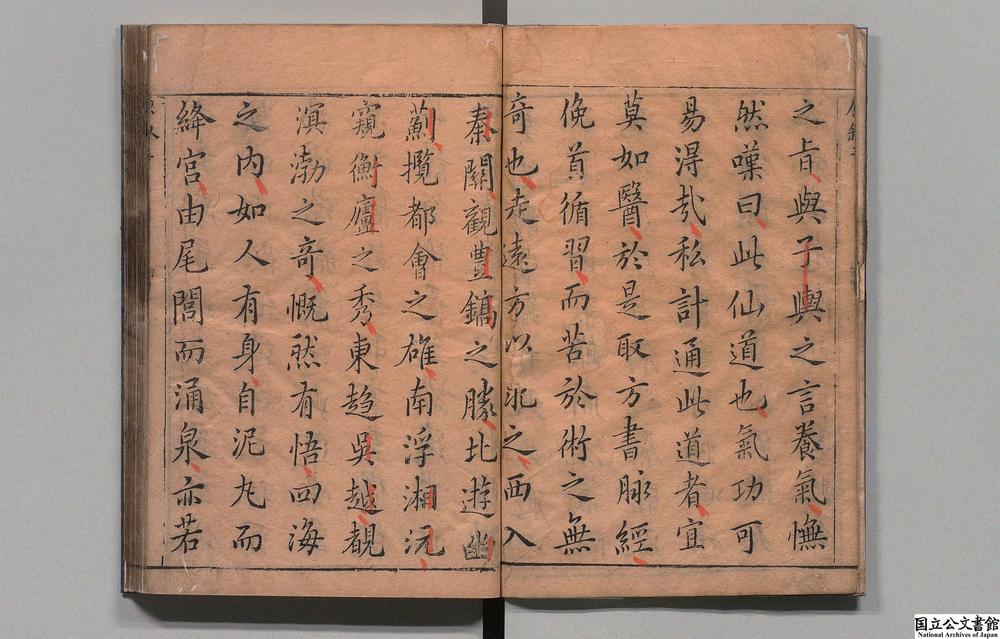 之旨與子輿之言養氣憮
然嘆曰此仙道也氣功可
易得㢤私計通此道者宜
莫如醫於是取方書脉經
俛首循習而苦於術之無
奇也走遠方以求之西入
秦關觀豐鎬之勝北遊幽
薊攬都會之雄南浮湘沅
窺衡廬之秀東趋吳越覩
溟渤之奇慨然有悟四海
之内如人有身自泥丸而
絳宮由尾閭而涌泉亦若
国立公文書館
National Archives of Japan